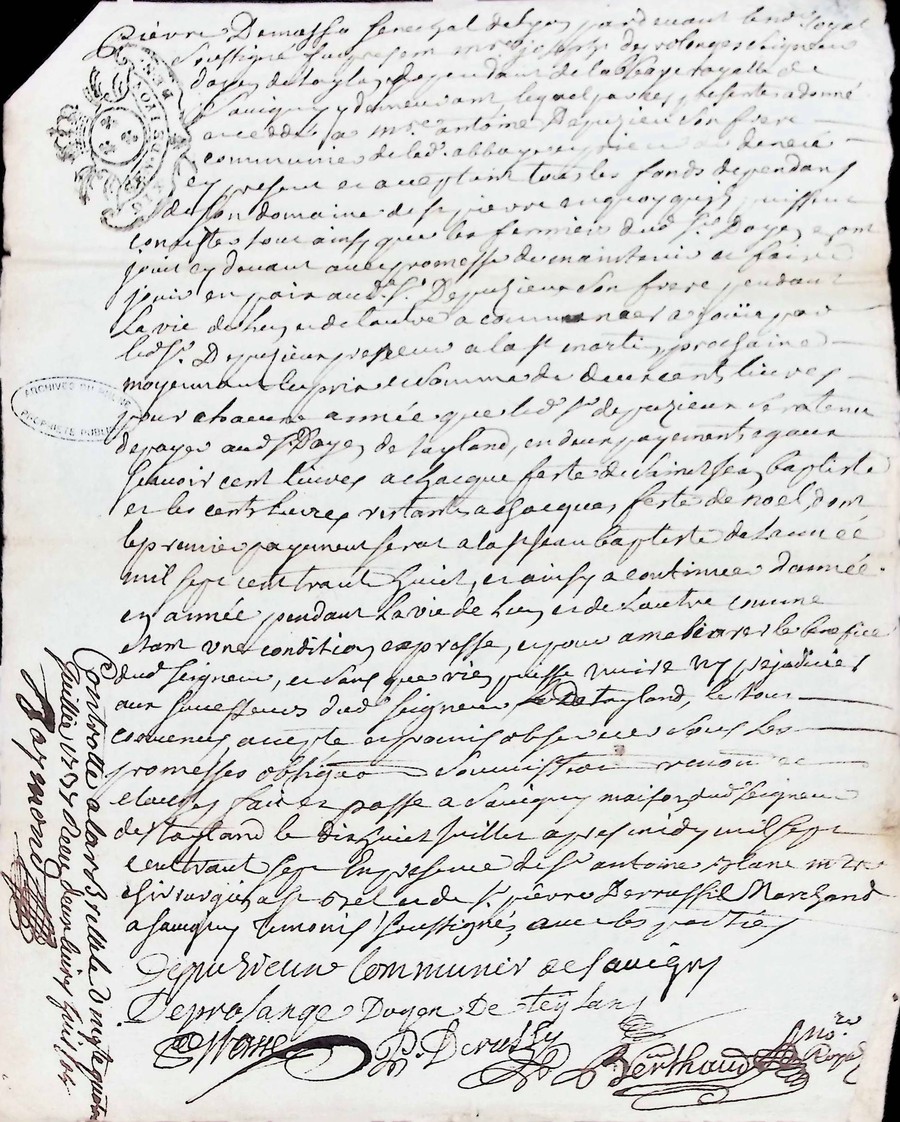 Pierre Demasso Senechal de Lyon pardevant le no.re Royal
Soussigné fut present m.re joseph de Seigneur
doyen de teylan dependant de labbaye royalle de
Savigny y demeurant, lequel par ces presentes a donné
a m.re antoine Depuzieu Son frere
communier de lad. abbaye
et present et acceptant tous les fonds dependans
de Son domaine de St pierre en quoy quils puissent
consister tout ainsy que les fermiers dud. Sr. Doyen ont
jouit cy devant avec promesse de maintenir et faire
jouir en paix aud. Sr. Depuzieux Son frere pendant
La vie de Lun et de Lautre a commencer a joüir par
led. Sr. Depuzieux a la St martin prochaine
moyennant le prix et Somme de deux cent livres
pour chacune année que led. Sr depuzieux Sera tenu
de payer aud. Sr. Doyen de tayland, en deux payements egaux
scavoir cent livres a chacque feste de Saint Jean baptiste
et les cent Livres restants a chacque feste de noel, dont
le premier payement serat a la St Jean baptiste de Lannée
mil sept cent trant huict, et ainsy a continuer dannée
en année pendant La vie de Lun et de Lautre comme
etant une condition expresse, et pour ameliorer le benefice
dud. seigneur, et sans que rien puisse nuire ny prejudicier
aux successeurs dud. seigneur De tayland, le tout
convenu accepté et promis observer sous les
promesses obligaõn Soumission renonõn et
clauses fait et passé a Savigny maison dud. Seigneur
de tayland le dix huict Juillet apres midy mil sept
cent trant sept En presence de Sr. antoine blanc m.re
chirurgien a St bel et de Sr. pierre Derussil Marchand
a savigny temoins Soussignés avec les parties
Depuzieux Communier de Savigny
Doyen De teylan
P. Derussy
Berthaud no.re Royal
Controllé a Larbrelle le vingt quatre
Juillet 1737 Reçu deux livres huit sols
Raymond
ARCHIVES DU RHÔNE
PROPRIÉTÉ PUBLIQUE